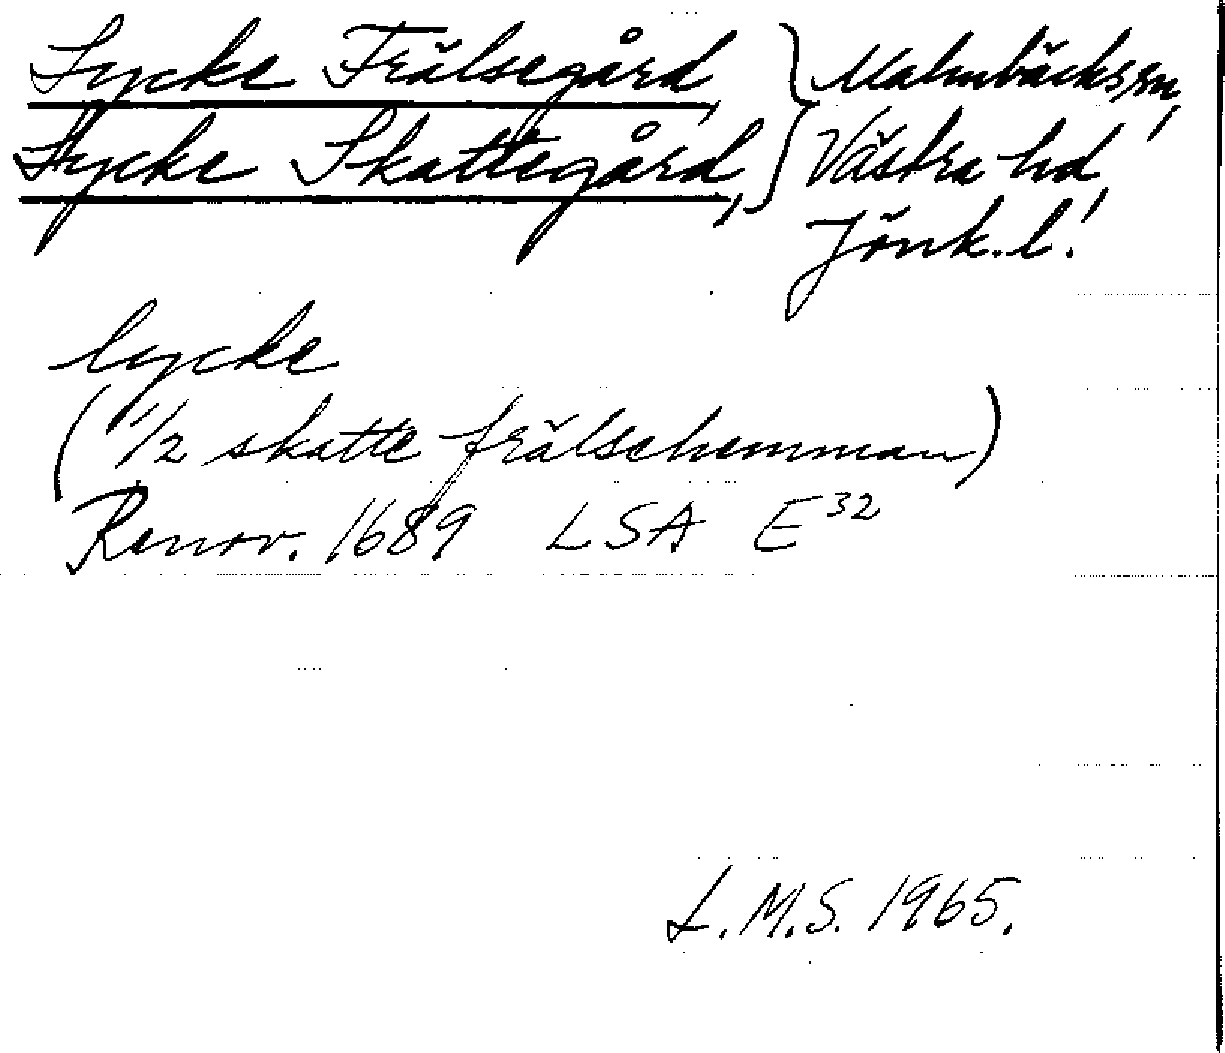 Lycke Frälsegård, } Malmbäcks sn,
Lycke Skattegård, } Västra hd,
Jönk. l.
lycke
(1/2 skatte frälsehemman)
Renov. 1689 LSA E32
L.M.S. 1965.